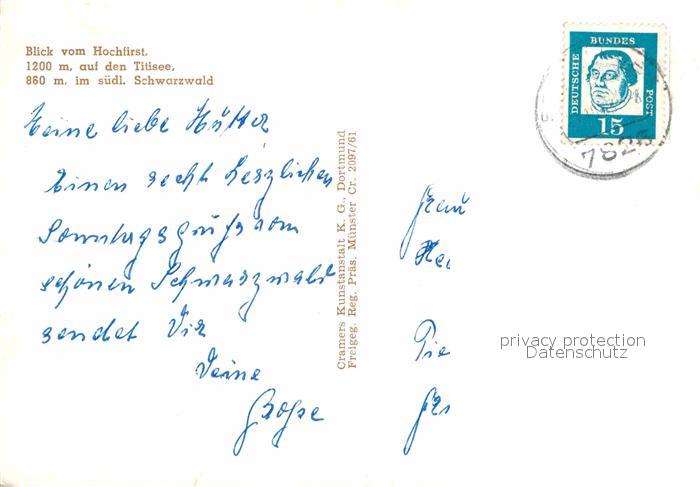 Blick vom Hochfirst,
1200 m, auf den Titisee,
860 m, im südl. Schwarzwald
liebe Mutter
Einen recht herzlichen
Sonntagsgruß vom
schönen Schwarzwald
sendet Dir
Deine
Cramers Kunstanstalt K. G., Dortmund
Freigeg. Reg. Präs. Münster Cr. 2097/61
DEUTSCHE
BUNDES
POST
15
7826
Frau
privacy protection
Datenschutz